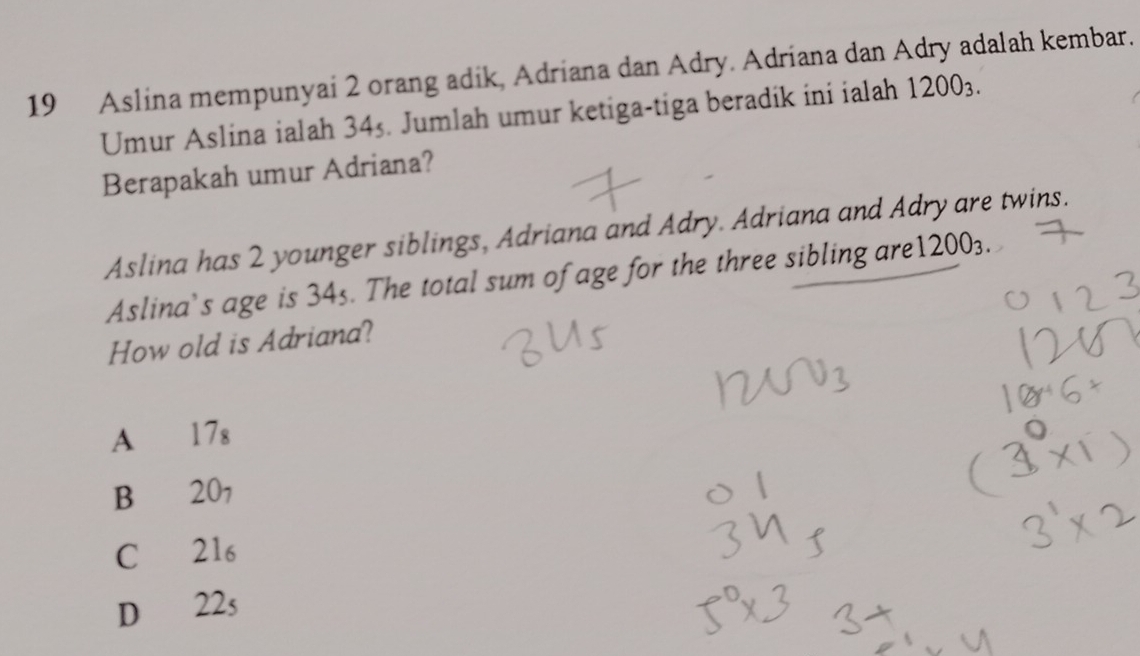 19 Aslina mempunyai 2 orang adik, Adriana dan Adry. Adriana dan Adry adalah kembar.
Umur Aslina ialah 34₅. Jumlah umur ketiga-tiga beradik ini ialah 1200₃.
Berapakah umur Adriana?
7
Aslina has 2 younger siblings, Adriana and Adry. Adriana and Adry are twins.
7
Aslina's age is 34₅. The total sum of age for the three sibling are1200₃.
How old is Adriana?
0 1 2 3
34₅
1200₃
A 17₈
(3⁰×1)
B 20₇
0 1
3¹×2
C 21₆
34₅
D 22₅
5⁰×3 3+